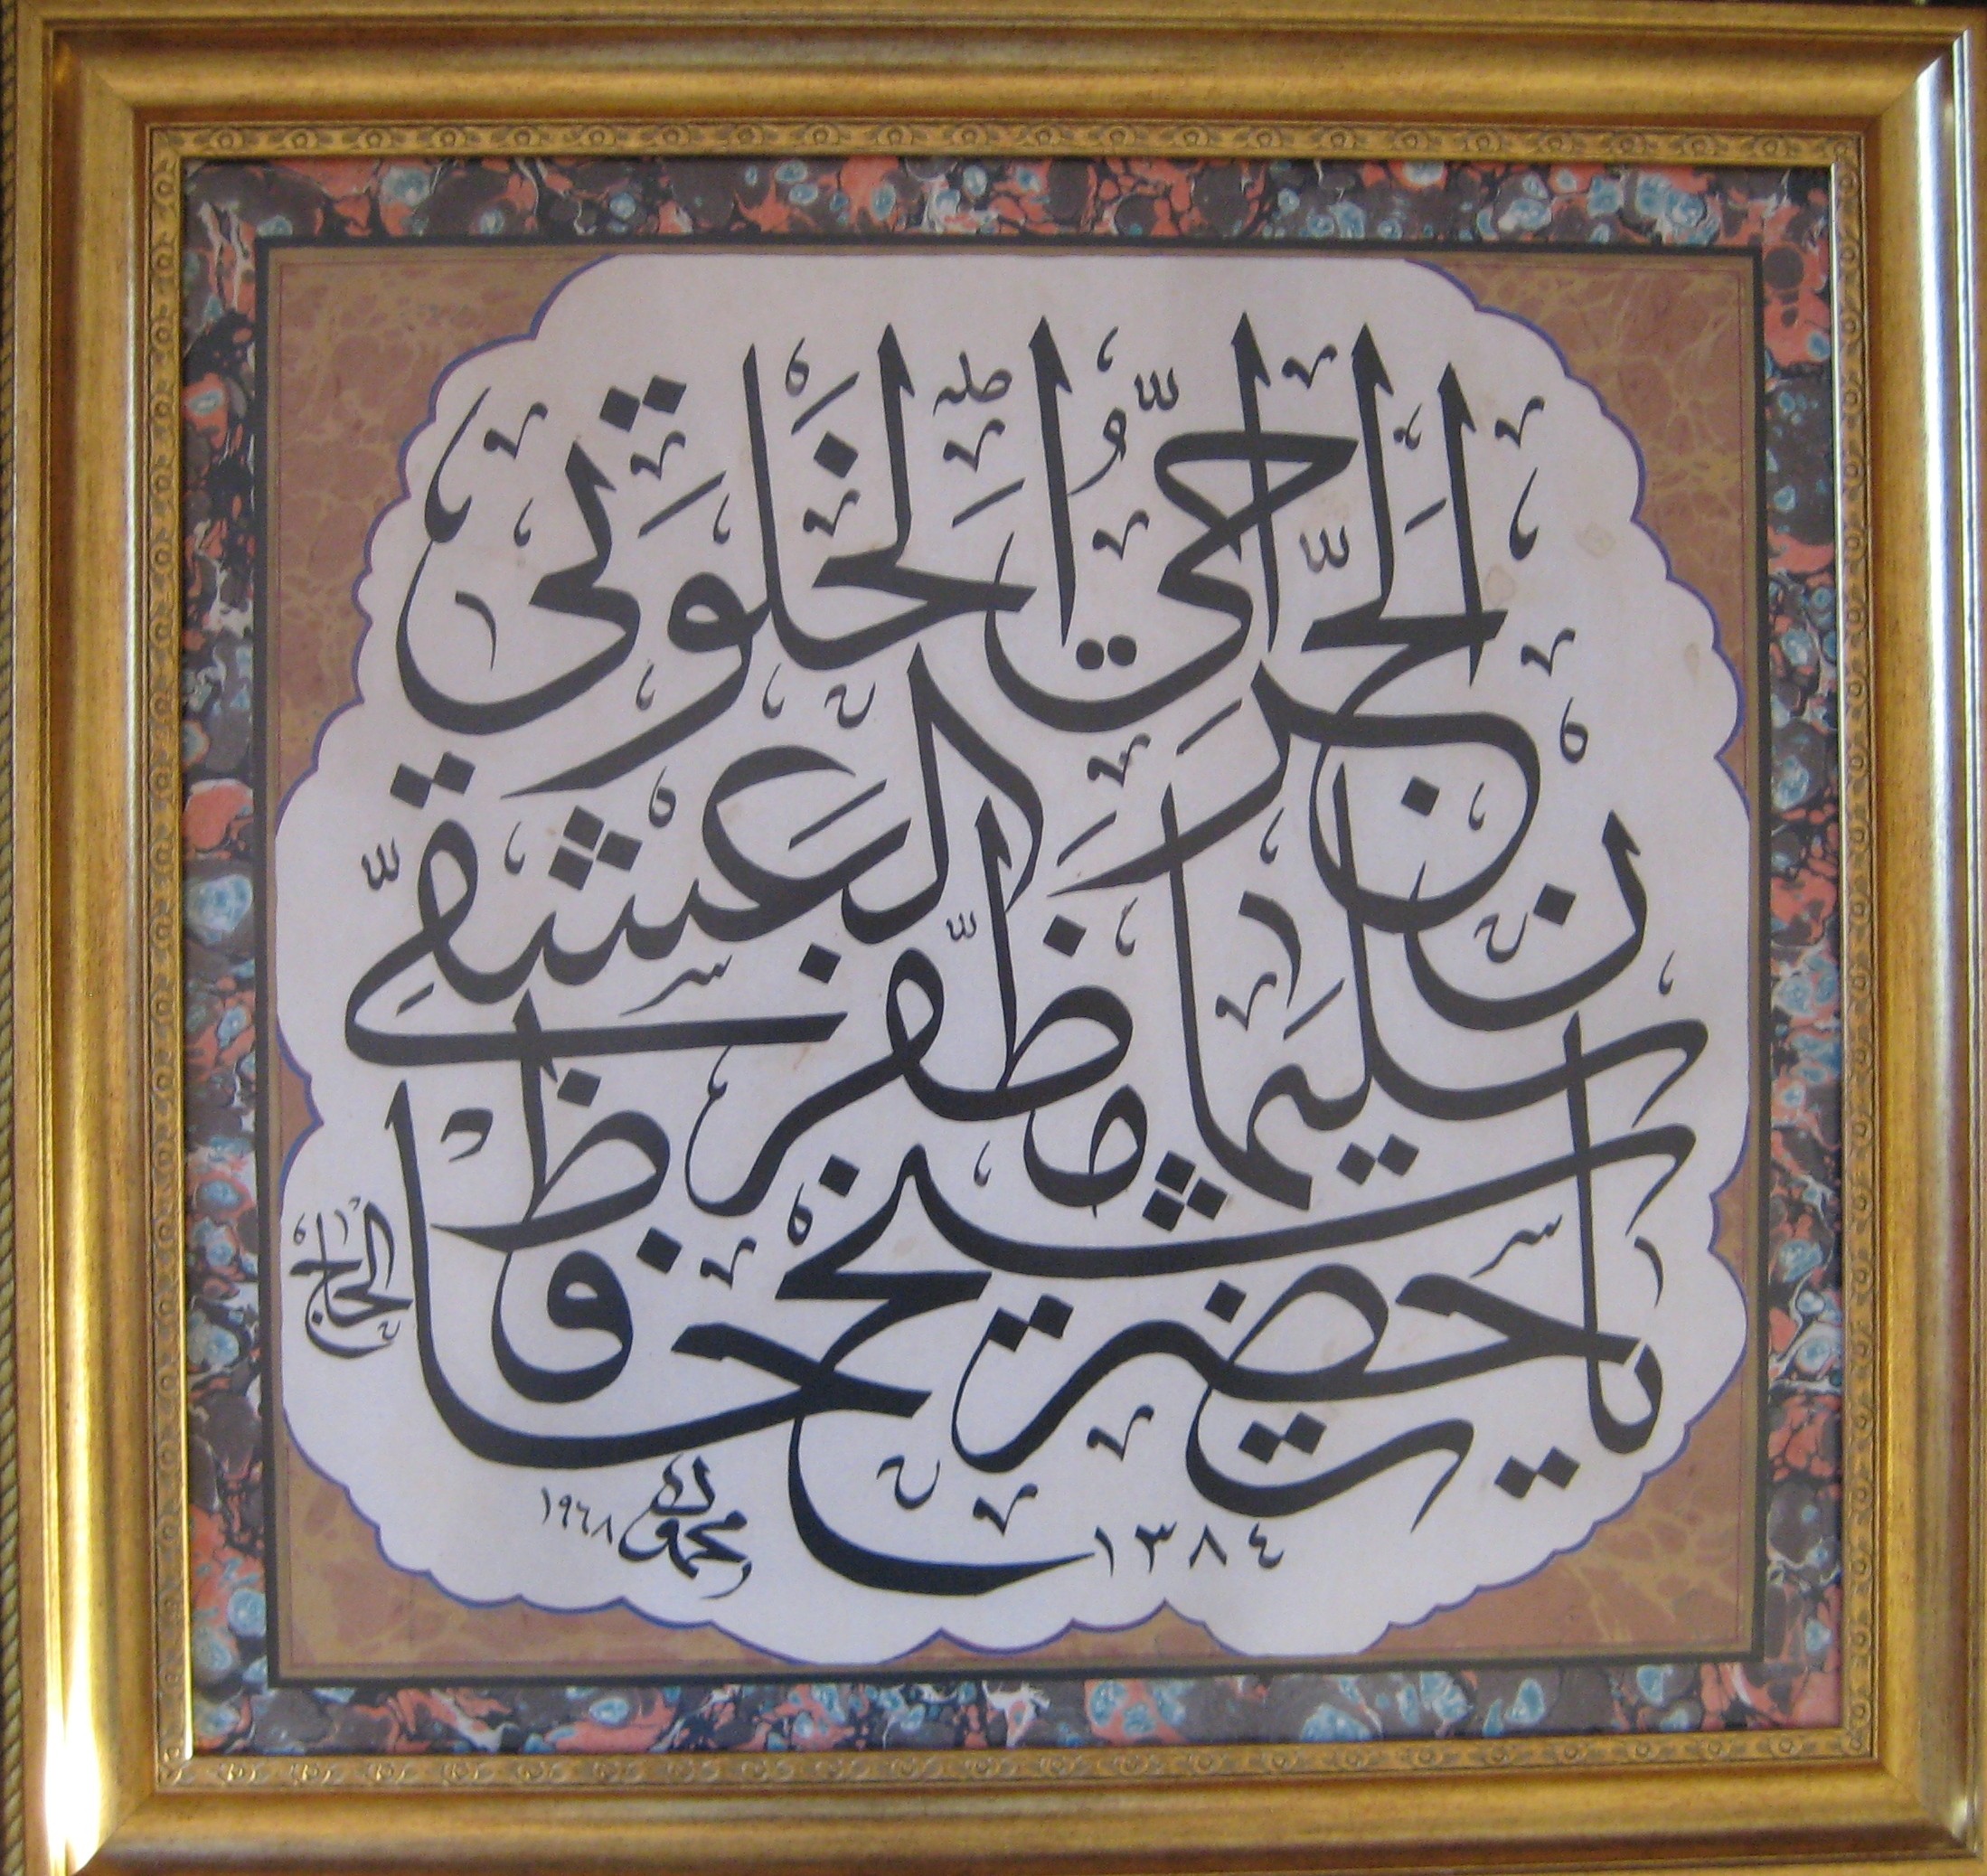 يا حضرت شيخ حافظ
الحاج
سليمان مظفر العشقي
الجراحي الخلوتي
محمود ١٩٦٨
١٣٨٤